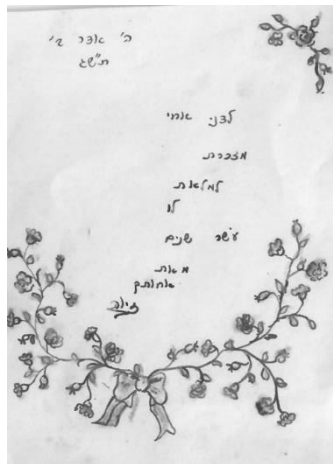 ה' אדר ב'
ת"שג
לדני אחי
מזכרת
למלאת
לו
עשר שנים
מאת
אחותך